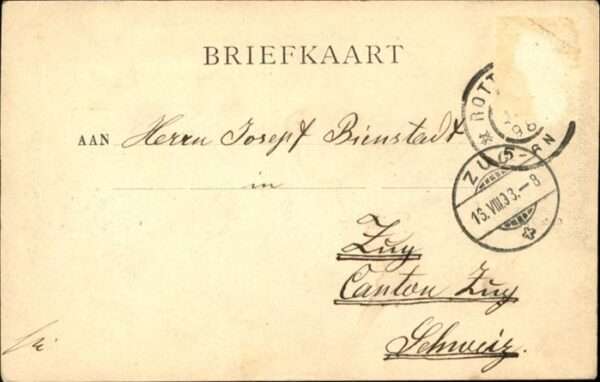 BRIEFKAART
AAN Herrn Josepf Bienstadt
in
Zug
Canton Zug
Schweiz.
ROTT
98
5-6N
ZUG
13.VIII.93.-8